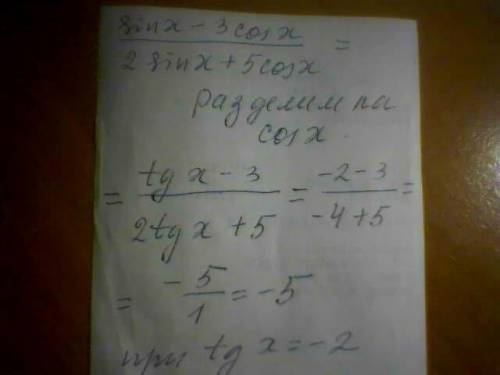 sinx - 3cosx
2sinx + 5cosx =
разделим на
cosx.
= tgx - 3 / 2tgx + 5 = -2-3 / -4+5 =
= -5/1 = -5
при tgx = -2